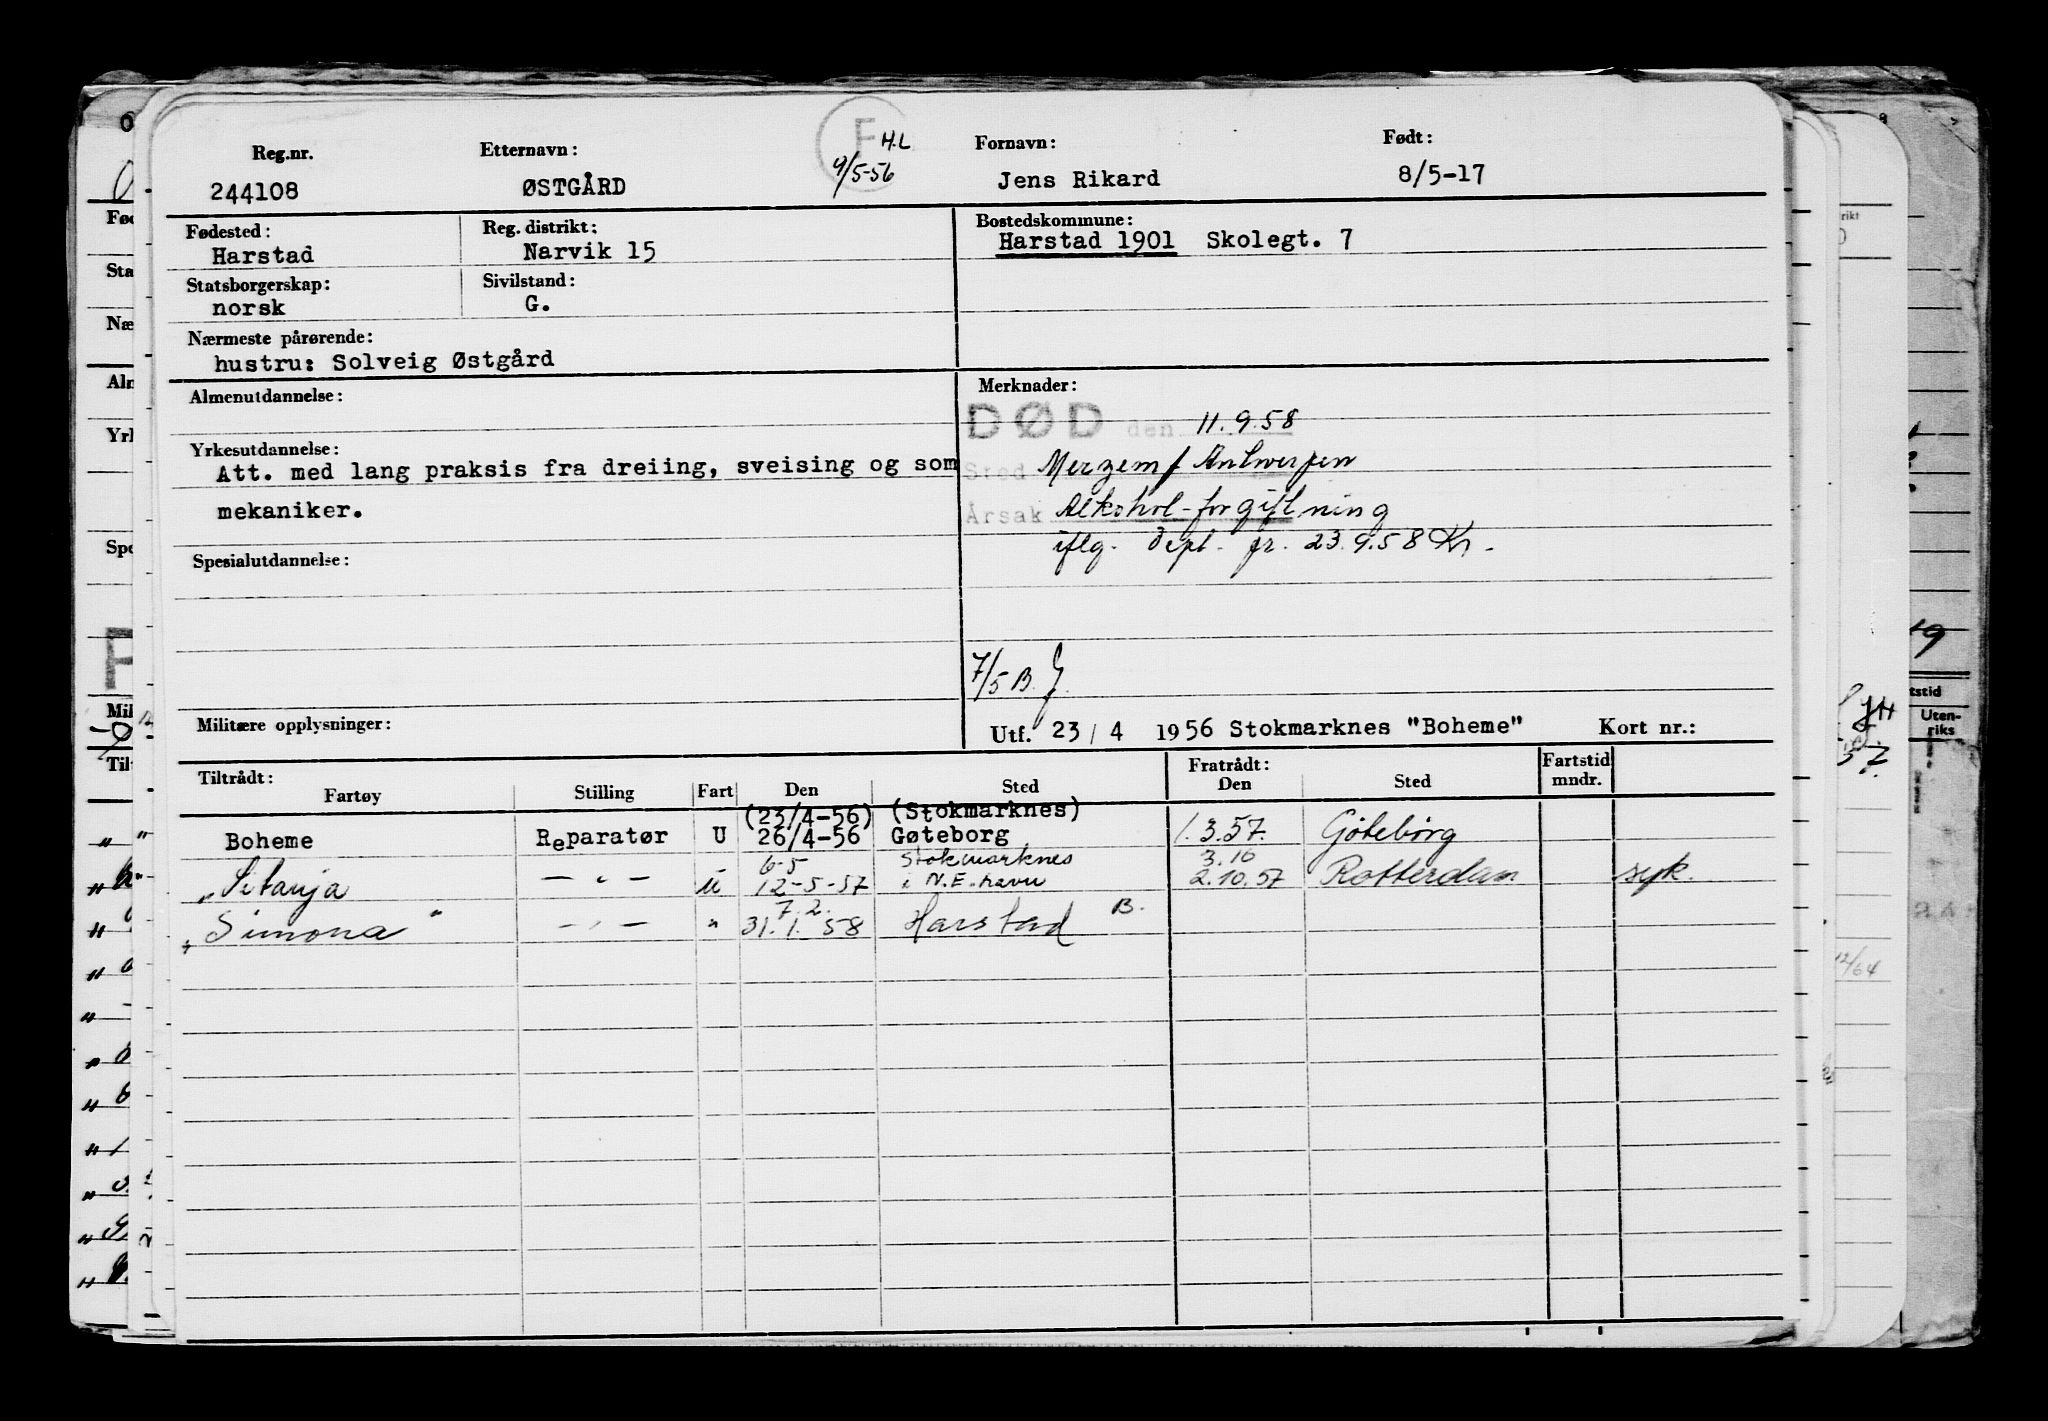 Reg.nr. Etternavn: F H.L Fornavn: Født:
244108 ØSTGÅRD 9/5-56 Jens Rikard 8/5-17
Fødested: Reg. distrikt: Bostedskommune:
Harstad Narvik 15 Harstad 1901 Skolegt. 7
Statsborgerskap: Sivilstand:
norsk G.
Nærmeste pårørende:
hustru: Solveig Østgård
Almenutdannelse: Merknader:
DØD den 11.9.58
Yrkesutdannelse:
Att. med lang praksis fra dreiing, sveising og som
mekaniker.
Sted Merzem / Antwerpen
Årsak Alkohol-forgiftning
iflg. Dept. fr. 23.9.58 Kr.
Spesialutdannelse:
7/5 B.
Militære opplysninger: Utf. 23/4 1956 Stokmarknes "Boheme" Kort nr.:
Tiltrådt: Fratrådt: Fartstid
Fartøy Stilling Fart Den Sted Den Sted mndr.
(23/4-56) (Stokmarknes)
Boheme Reparatør U 26/4-56 Gøteborg 1.3.57. Göteborg
6-5 Stokmarknes 3.10
"Sitanja — " — U 12-5-57 i N.E. havn 2.10.57 Rotterdam syk.
7.2. B.
"Simona" — " — " 31.1.58 Harstad